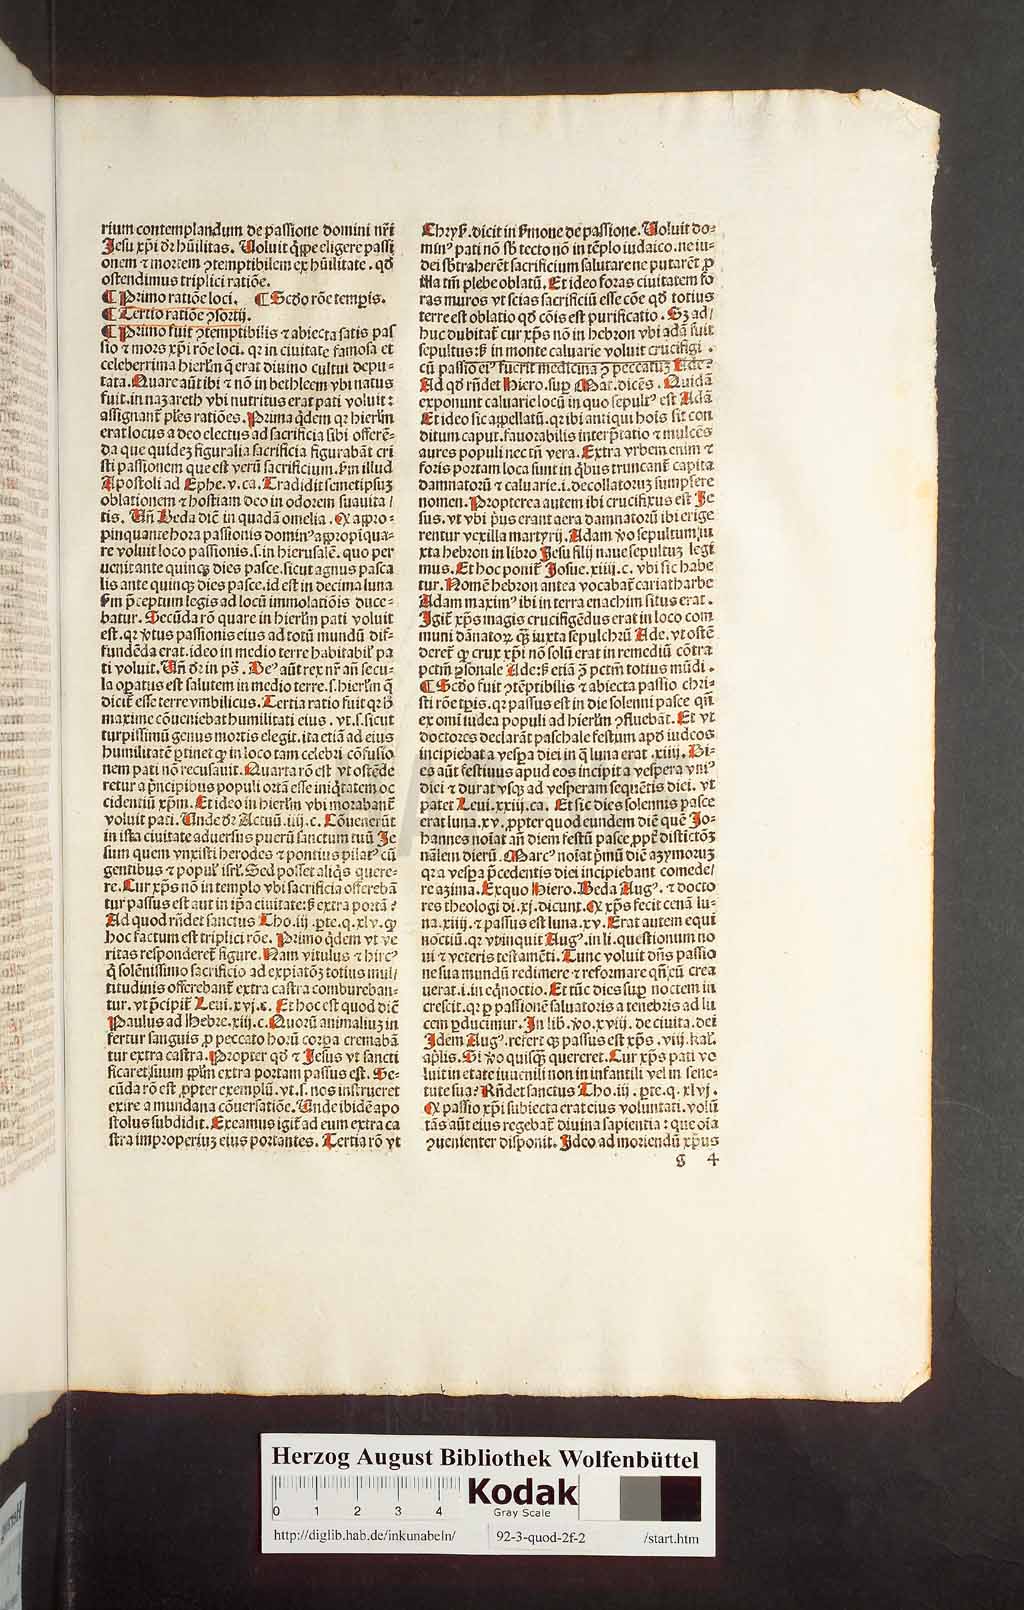 rium contemplandum de passione domini nr̄i
Jesu xp̄i dr̄ hūilitas. Uoluit q̄ppe eligere passi
onem ⁊ mortem ꝯtemptibilem ex hūilitate. qđ
ostendimus triplici ratiōe.
¶ Primo ratiōe loci. ¶ Scđo rōe temp̄is.
¶ Tertio ratiōe ꝯsortij.
¶ Primo fuit ꝯtemptibilis ⁊ abiecta satis pas
sio ⁊ mors xp̄i rōe loci. qr in ciuitate famosa et
celeberrima hierlm̄ q̄ erat diuino cultui depu⸗
tata. Quare aūt ibi ⁊ nō in bethleem vbi natus
fuit. in nazareth vbi nutritus erat pati voluit:
assignant̄ ples ratiōes. Prima q̄dem qr hierlm̄
erat locus a deo electus ad sacrificia sibi offerē⸗
da que quidez figuralia sacrificia figurabāt cri
sti passionem que est verū sacrificium. ẜm illud
Apostoli ad Ephe. v. ca. Tradidit semetipsuꝫ
oblationem ⁊ hostiam deo in odorem suauita/
tis. Un̄ Beda dic̄ in quadā omelia. Q appro⸗
pinquante hora passionis domin⁹ appropiqua⸗
re voluit loco passionis. s. in hierusalē. quo per
uenit ante quinqꝫ dies pasce. sicut agnus pasca
lis ante quinqꝫ dies pasce. id est in decima luna
ẜm p̄ceptum legis ad locū immolatiōis duce⸗
batur. Secūda rō quare in hierlm̄ pati voluit
est. qr v̓tus passionis eius ad totū mundū dif⸗
fundēda erat. ideo in medio terre habitabil̓ pa
ti voluit. Un̄ dr̄ in ps̄. De⁹ aūt rex nr̄ an̄ secu⸗
la oꝑatus est salutem in medio terre. s. hierlm̄ q̄
dicit̄ esse terre vmbilicus. Tertia ratio fuit qr B
maxime cōueniebat humilitati eius. vt. s. sicut
turpissimū genus mortis elegit. ita etiā ad eius
humilitatē ꝑtinet ꝙ in loco tam celebri cōfusio
nem pati nō recusauit. Quarta rō est vt ostēde
retur a p̄ncipibus populi ortā esse iniq̄tatem oc
cidentiū xp̄m. Et ideo in hierlm̄ vbi morabant̄
voluit pati. Unde dr̄ Actuū. iiij. c. Cōuenerūt
in ista ciuitate aduersus puerū sanctum tuū Je
sum quem vnxisti herodes ⁊ pontius pilat⁹ cū
gentibus ⁊ popul̓ isrl̓. Sed posset aliq̄s quere⸗
re. Cur xp̄s nō in templo vbi sacrificia offerebā
tur passus est aut in ip̄a ciuitate: ẜ extra portā?
Ad quod rn̄det sanctus Tho. iij. ꝑte. q. xlv. ꝙ
hoc factum est triplici rōe. Primo q̄dem vt ve
ritas responderet figure. Nam vitulus ⁊ hirc⁹
q̄ solēnissimo sacrificio ad expiatōꝫ totius mul/
titudinis offerebant̄ extra castra comburebans
tur. vt p̄cipit̄ Leui. xvj. c. Et hoc est quod dic̄
Paulus ad Hebre. xiij. c. Quorū animaliuꝫ in
fertur sanguis ꝓ peccato horū corꝑa cremabā
tur extra castra. Propter qđ ⁊ Jesus vt sancti
ficaret suum pplm̄ extra portam passus est. Se⸗
cūda rō est ꝓpter exemplū. vt. s. nos instrueret
exire a mundana cōuersatiōe. Unde ibidē apo
stolus subdidit. Exeamus igit̄ ad eum extra ca
stra improperiuꝫ eius portantes. Tertia rō vt
Chryẜ. dicit in ẜmone de passione. Uoluit do⸗
min⁹ pati nō sb̄ tecto nō in tēplo iudaico. ne iu⸗
dei sb̄traherēt sacrificium salutare ne putarēt ꝓ
illa tm̄ plebe oblatū. Et ideo foras ciuitatem fo
ras muros vt scias sacrificiū esse cōe qđ totius
terre est oblatio qđ cōis est purificatio. Sꝫ ad/
huc dubitat̄ cur xp̄s nō in hebron vbi adā fuit
sepultus: ẜ in monte caluarie voluit crucifigi.
cū passio ei⁹ fuerit medicina ꝓ peccatuꝫ Ade?
Ad qđ rn̄det Hiero. suꝑ Mat. dicēs. Quidā
exponunt caluarie locū in quo sepult⁹ est Adā
Et ideo sic appellatū. qr ibi antiqui hoīs sit con
ditum caput. fauorabilis interp̄tatio ⁊ mulcēs
aures populi nec tn̄ vera. Extra vrbem enim ⁊
foris portam loca sunt in q̄bus truncant̄ capita
damnatorū ⁊ caluarie. i. decollatoꝝ sumpsere
nomen. Propterea autem ibi crucifixus est Je
sus. vt vbi p̄us erant aera damnatorū ibi erige
rentur vexilla martyrij. Adam v̓o sepultum iu
xta hebron in libro Jesu filij naue sepultuꝫ legi
mus. Et hoc ponit̄ Josue. xiiij. c. vbi sic habe
tur. Nomē hebron antea vocabat̄ cariatharbe
Adam maxim⁹ ibi in terra enachim situs erat.
Igit̄ xp̄s magis crucifigēdus erat in loco com
muni dānatoꝝ qꝫ iuxta sepulchrū Ade. vt ostē
deret̄ ꝙ crux xp̄i nō solū erat in remediū cōtra
pctm̄ ꝑsonale Ade: ẜ etiā ꝓ pctm̄ totius mūdi.
¶ Scđo fuit ꝯtēptibilis ⁊ abiecta passio chri⸗
sti rōe tp̄is. qr passus est in die solenni pasce qn̄
ex omī iudea populi ad hierlm̄ ꝯfluebāt. Et vt
doctores declarāt paschale festum apđ iudeos
incipiebat a vesꝑa diei in q̄ luna erat. xiiij. Di⸗
es aūt festiuus apud eos incipit a vespera vni⁹
diei ⁊ durat vsqꝫ ad vesperam sequētis diei. vt
patet Leui. xxiij. ca. Et sic dies solennis pasce
erat luna. xv. ꝓpter quod eundem diē quē Jo⸗
hannes noīat an̄ diem festū pasce. ꝓpt̓ distictōꝫ
nālem dierū. Marc⁹ noīat p̄mū diē azymoruꝫ
qr a vesꝑa p̄cedentis diei incipiebant comede/
re azima. Ex quo Hiero. Beda Aug⁹. ⁊ docto
res theologi di. xj. dicunt. Q xp̄s fecit cenā lu⸗
na. xiiij. ⁊ passus est luna. xv. Erat autem equi
noctiū. qr vt inquit Aug⁹. in li. questionum no
ui ⁊ veteris testamēti. Tunc voluit dn̄s passio
ne sua mundū redimere ⁊ reformare qn̄ eū crea
uerat. i. in eq̄noctio. Et tūc dies suꝑ noctem in
crescit. qr ꝑ passionē saluatoris a tenebris ad lu
cem ꝑducimur. In lib. v̓o. xviij. de ciuita. dei
Idem Aug⁹. refert ꝙ passus est xp̄s. viij. kal̓.
ap̄lis. Si v̓o quisqꝫ quereret. Cur xp̄s pati vo
luit in etate iuuenili non in infantili vel in senec⸗
tute sua? Rn̄det sanctus Tho. iij. ꝑte. q. xlvj.
Q passio xp̄i subiecta erat eius voluntati. volū
tās aūt eius regebat̄ diuina sapientia: que oīa
ꝯuenienter disponit. Ideo ad moriendū xp̄us
g 4
Herzog August Bibliothek Wolfenbüttel
Kodak
Gray Scale
0 1 2 3 4
http://diglib.hab.de/inkunabeln/ 92-3-quod-2f-2 /start.htm